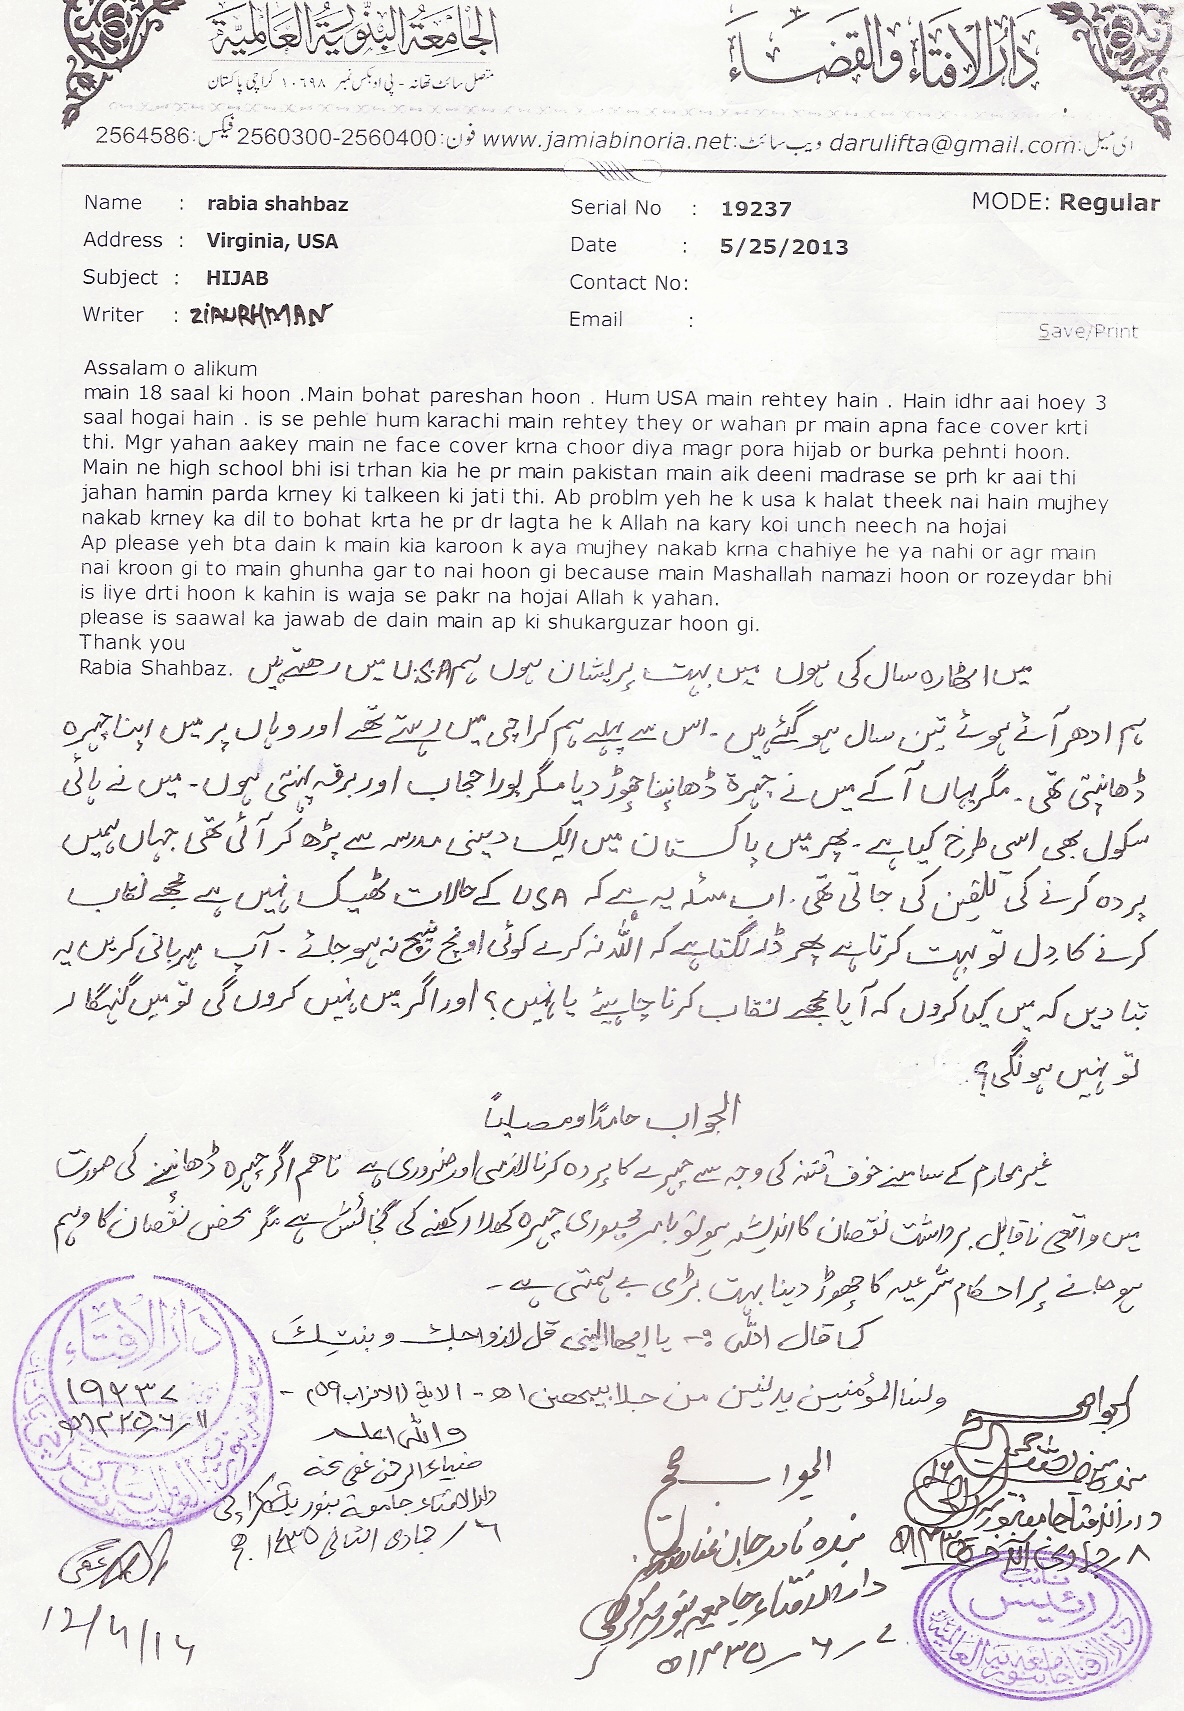 الجامعة البنورية العالمية
دار الافتاء والقضاء
متصل سائٹ تھانہ - پی او بکس نمبر ۱۰۶۹۸ کراچی پاکستان
ای میل: darulifta@gmail.com ویب سائٹ: www.jamiabinoria.net فون: 2560300-2560400 فیکس: 2564586
Name : rabia shahbaz
Serial No : 19237
MODE: Regular
Address : Virginia, USA
Date : 5/25/2013
Subject : HIJAB
Contact No:
Writer : ZIAURHMAN
Email :
Save/Print
Assalam o alikum
main 18 saal ki hoon .Main bohat pareshan hoon . Hum USA main rehtey hain . Hain idhr aai hoey 3
saal hogai hain . is se pehle hum karachi main rehtey they or wahan pr main apna face cover krti
thi. Mgr yahan aakey main ne face cover krna choor diya magr pora hijab or burka pehnti hoon.
Main ne high school bhi isi trhan kia he pr main pakistan main aik deeni madrase se prh kr aai thi
jahan hamin parda krney ki talkeen ki jati thi. Ab problm yeh he k usa k halat theek nai hain mujhey
nakab krney ka dil to bohat krta he pr dr lagta he k Allah na kary koi unch neech na hojai
Ap please yeh bta dain k main kia karoon k aya mujhey nakab krna chahiye he ya nahi or agr main
nai kroon gi to main ghunha gar to nai hoon gi because main Mashallah namazi hoon or rozeydar bhi
is liye drti hoon k kahin is waja se pakr na hojai Allah k yahan.
please is saawal ka jawab de dain main ap ki shukarguzar hoon gi.
Thank you
Rabia Shahbaz.
میں اٹھارہ سال کی ہوں میں بہت پریشان ہوں ہم U.S.A میں رہتے ہیں
ہم ادھر آئے ہوئے تین سال ہوگئے ہیں۔ اس سے پہلے ہم کراچی میں رہتے تھے اور وہاں پر میں اپنا چہرہ
ڈھانپتی تھی۔ مگر یہاں آکے میں نے چہرۃ ڈھانپنا چھوڑ دیا مگر پورا حجاب اور برقہ پہنتی ہوں۔ میں نے ہائی
سکول بھی اسی طرح کیا ہے۔ پھر میں پاکستان میں ایک دینی مدرسہ سے پڑھ کر آئی تھی جہاں ہمیں
پردہ کرنے کی تلقین کی جاتی تھی۔ اب مسئلہ یہ ہے کہ USA کے حالات ٹھیک نہیں ہے مجھے نقاب
کرنے کا دِل تو بہت کرتا ہے پھر ڈر لگتا ہے کہ اللہ نہ کرے کوئی اونچ نیچ نہ ہوجائے۔ آپ مہربانی کریں یہ
بتا دیں کہ میں کیا کروں کہ آیا مجھے نقاب کرنا چاہیئے یا نہیں؟ اور اگر میں نہیں کروں گی تو میں گنہگار
تو نہیں ہونگی؟
الجواب حامدًا ومصلیاً
غیر محارم کے سامنے خوف فتنہ کی وجہ سے چہرے کا پردہ کرنا لازمی اور ضروری ہے تاھم اگر چہرہ ڈھانپنے کی صورت
میں واقعی ناقابل برداشت نقصان کا اندیشہ ہو تو بامر مجبوری چہرہ کھلا رکھنے کی گنجائش ہے مگر محض نقصان کا وہم
ہوجانے پر احکام شرعیہ کا چھوڑ دینا بہت بڑی بے ہمتی ہے۔
کما قال اللہ : یا ایھا النبی قل لازواجک وبنٰتک
ونساء المؤمنین یدنین من جلابیبھن اھ۔ الایة (الاحزاب ۵۹)۔
واللہ اعلم
ضیاء الرحمن عفی عنہ
دارالافتاء جامعہ بنوریہ کراچی
۶/ جمادی الثانی ۱۴۳۵ ھ
دار الافتاء
۱۹۲۳۷
۱۱/۶/۱۴۳۵ھ
الجواب صحیح
دارالافتاء جامعہ بنوریہ کراچی
۷/۶/۱۴۳۵ھ
الجواب صحیح
دارالافتاء جامعہ بنوریہ
نائب
رئیس
12/4/14